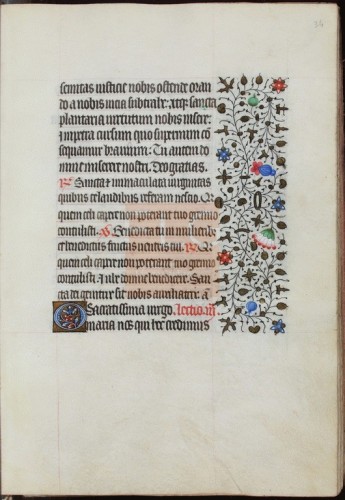 semitas iusticie nobis ostende oran
do a nobis vicia subtrahe: sancta
plantaria virtutum nobis insere:
impetra cursum quo supremum co
sequamur bravium: Tu autem do
mine miserere nostri. Deo gratias.
R Sancta et immaculata virginitas
quibus te laudibus referam nescio. Q
quem celi capere non poterant tuo gremio
contulisti. V Benedicta tu in mulieribꝰ
et benedictus fructus ventris tui. R Q
quem celi capere non poterant tuo gremio
contulisti. Iube domne benedicere. San
cta dei genitrix sit nobis auxiliatrix a
O Sacratissima virgo. Lectio
maria nos qui hec credimus